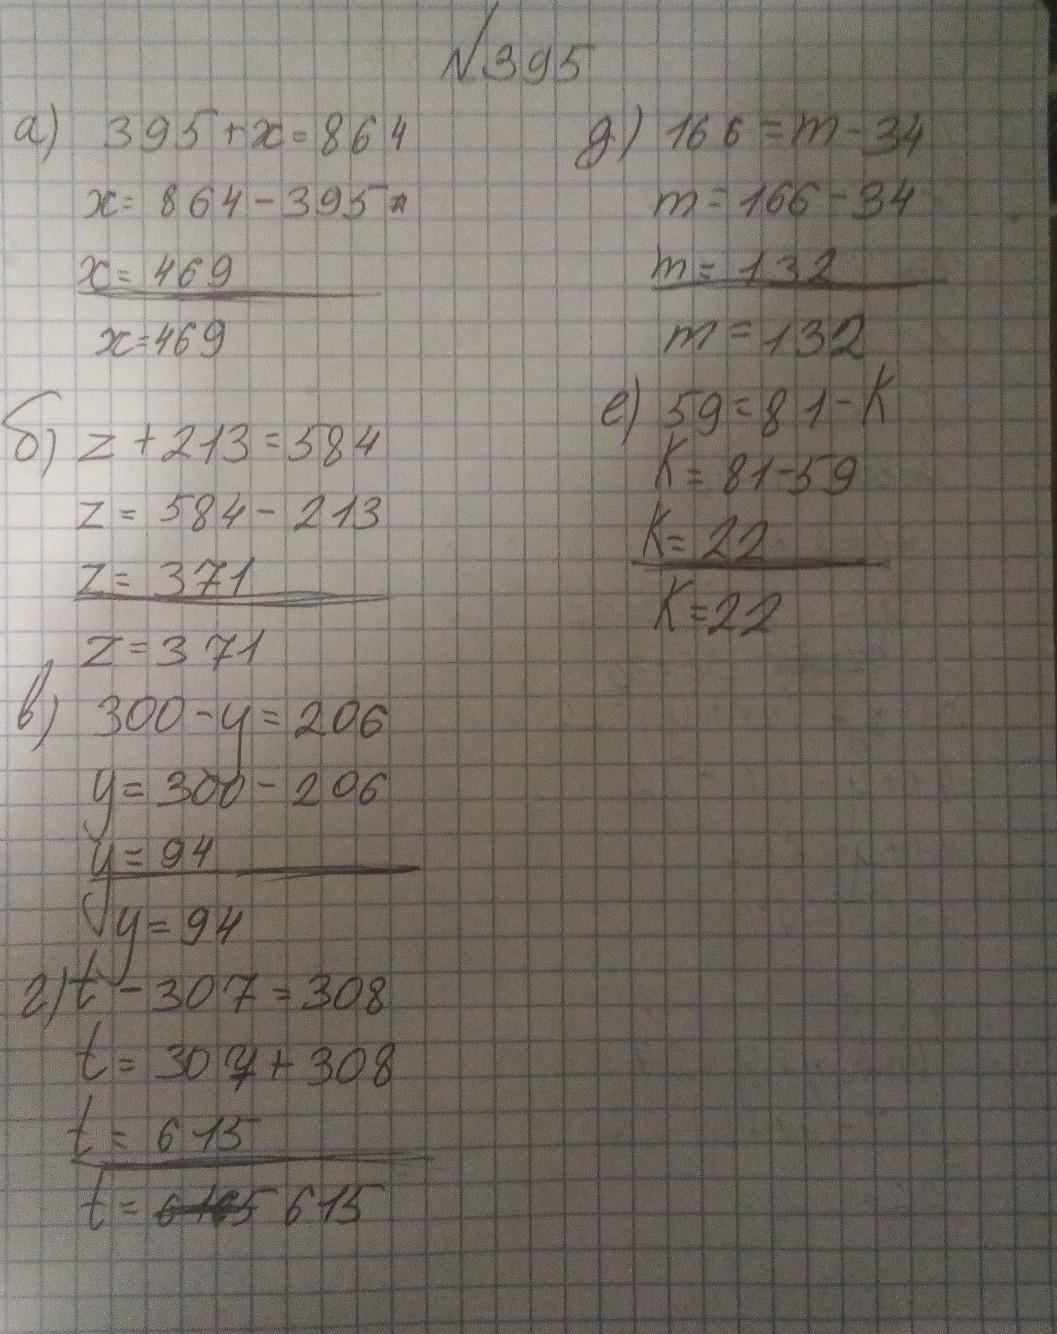 №395
а) 395+x=864
x=864-395
x=469
x=469
б) z+213=584
z=584-213
z=371
z=371
в) 300-y=206
y=300-206
y=94
y=94
г) t-307=308
t=307+308
t=615
t=615
д) 166=m-34
m=166-34
m=132
m=132
е) 59=81-K
K=81-59
K=22
K=22